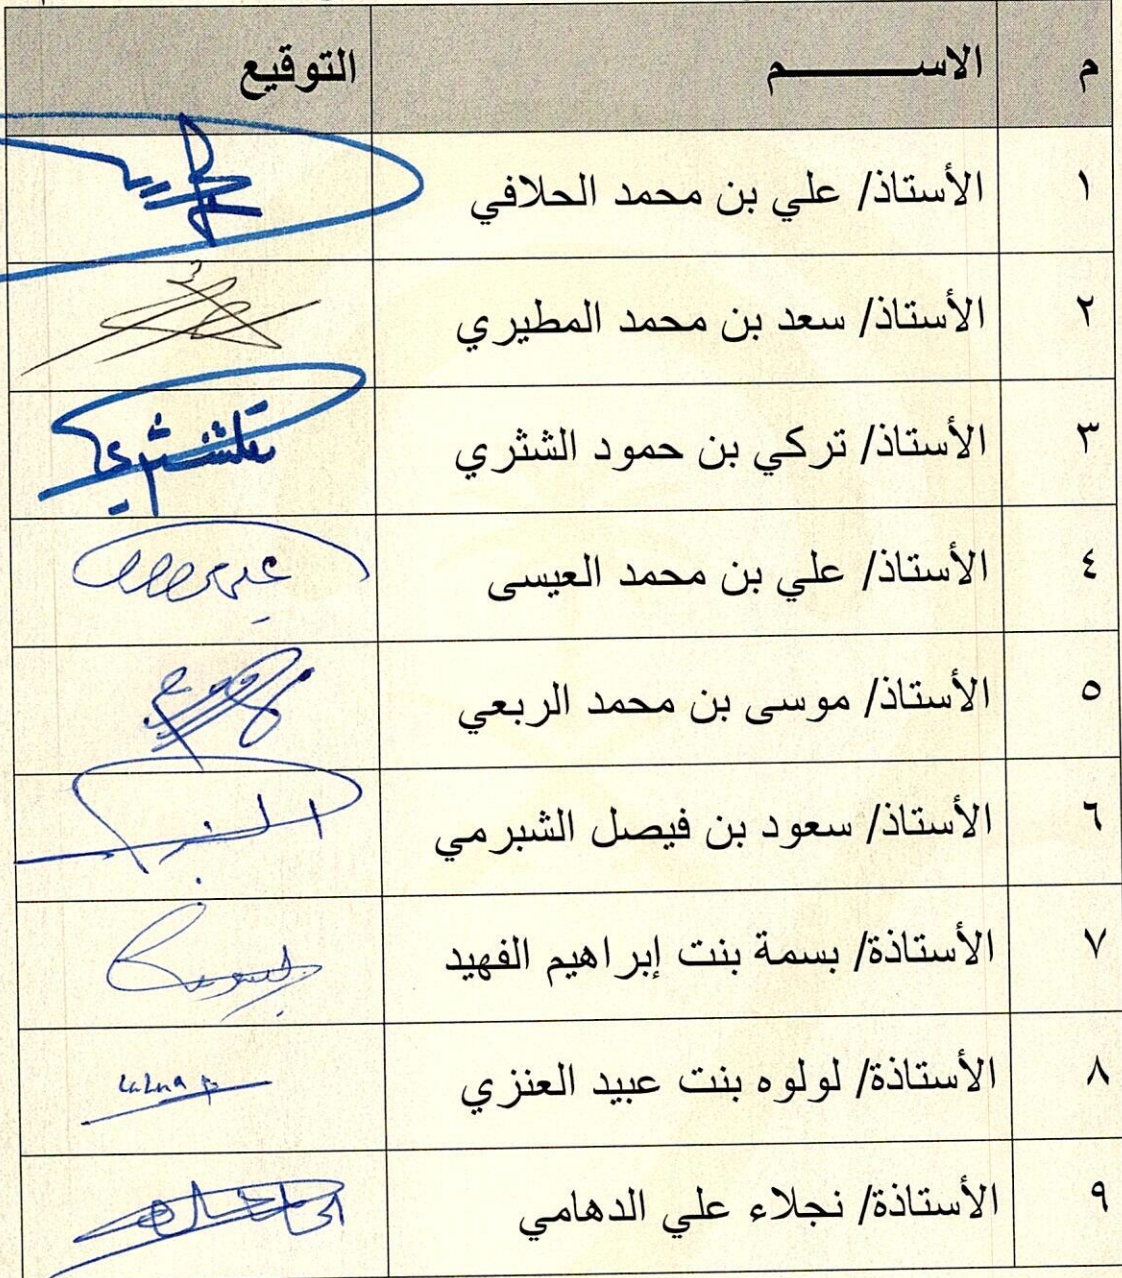 م الاســـــــم التوقيع
١ الأستاذ/ علي بن محمد الحلافي
٢ الأستاذ/ سعد بن محمد المطيري
٣ الأستاذ/ تركي بن حمود الشثري
٤ الأستاذ/ علي بن محمد العيسى
٥ الأستاذ/ موسى بن محمد الربعي
٦ الأستاذ/ سعود بن فيصل الشبرمي
٧ الأستاذة/ بسمة بنت إبراهيم الفهيد
٨ الأستاذة/ لولوه بنت عبيد العنزي
٩ الأستاذة/ نجلاء علي الدهامي